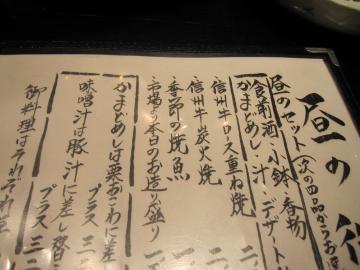 昼の
昼のセット(次の四品からお選
食前酒・小鉢・香物
かまどめし・汁・デザート
信州牛ロース重ね焼
信州牛炭火焼
季節の焼魚
市場より本日のお造り盛り
かまどめしは栗おこわに差
プラス三
味噌汁は豚汁に差し替え
プラス三二
御料理はそれぞれ